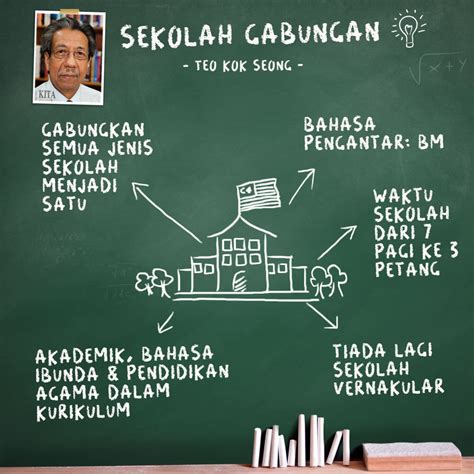 SEKOLAH GABUNGAN
- TEO KOK SEONG -
KITA
√x + y
GABUNGKAN
SEMUA JENIS
SEKOLAH
MENJADI
SATU
BAHASA
PENGANTAR: BM
WAKTU
SEKOLAH
DARI 7
PAGI KE 3
PETANG
AKADEMIK, BAHASA
IBUNDA & PENDIDIKAN
AGAMA DALAM
KURIKULUM
TIADA LAGI
SEKOLAH
VERNAKULAR